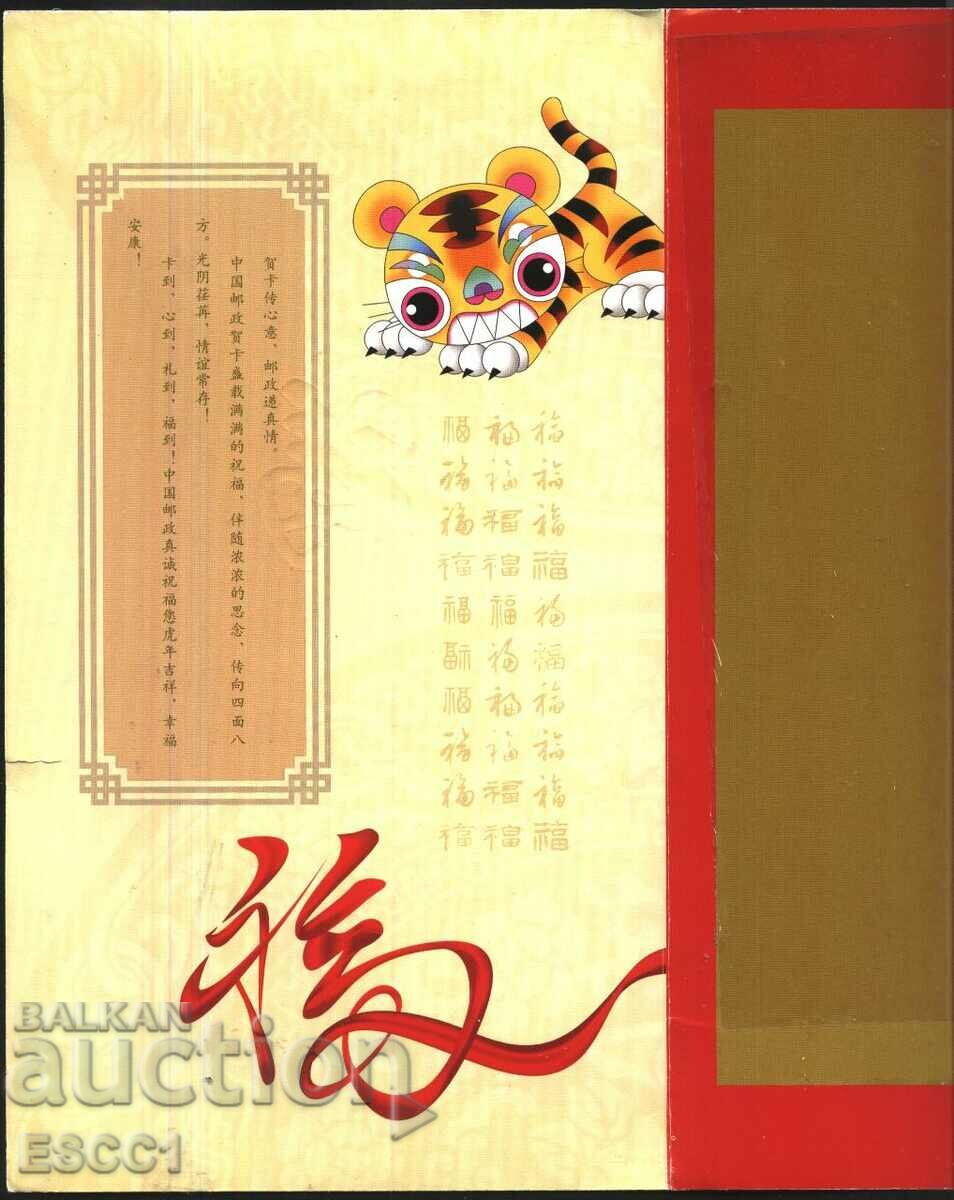 贺卡传心意、邮政递真情。
中国邮政贺卡盛载满满的祝福、伴随浓浓的思念、传向四面八
方。光阴荏苒、情谊常存！
卡到、心到、礼到、福到！中国邮政真诚祝福您虎年吉祥，幸福
安康！
福福福
福福福
福福福
福福福
福福福
福福福
福福福
福福福
福福福
福福福
福
BALKAN
auction
ESCC1